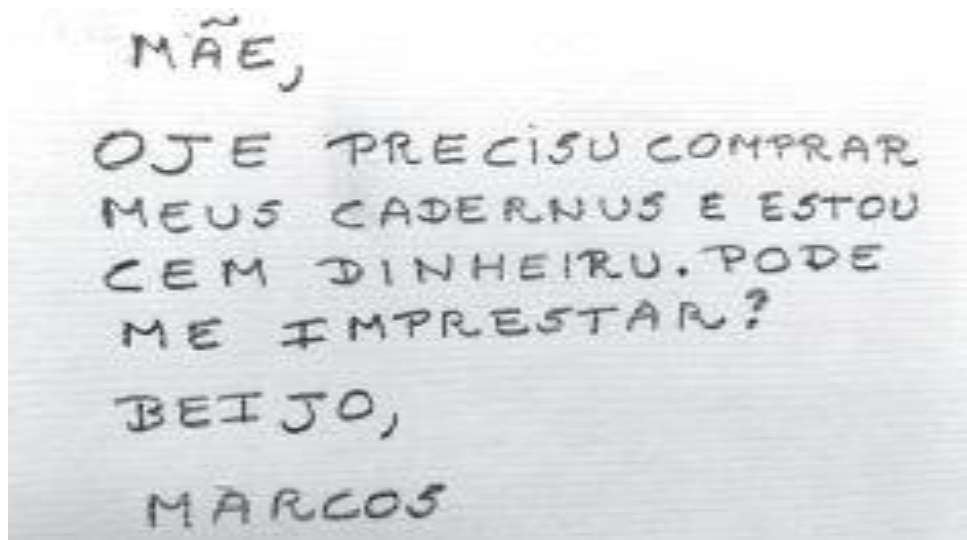 MÃE,
OJE PRECISU COMPRAR
MEUS CADERNUS E ESTOU
CEM DINHEIRU. PODE
ME IMPRESTAR?
BEIJO,
MARCOS